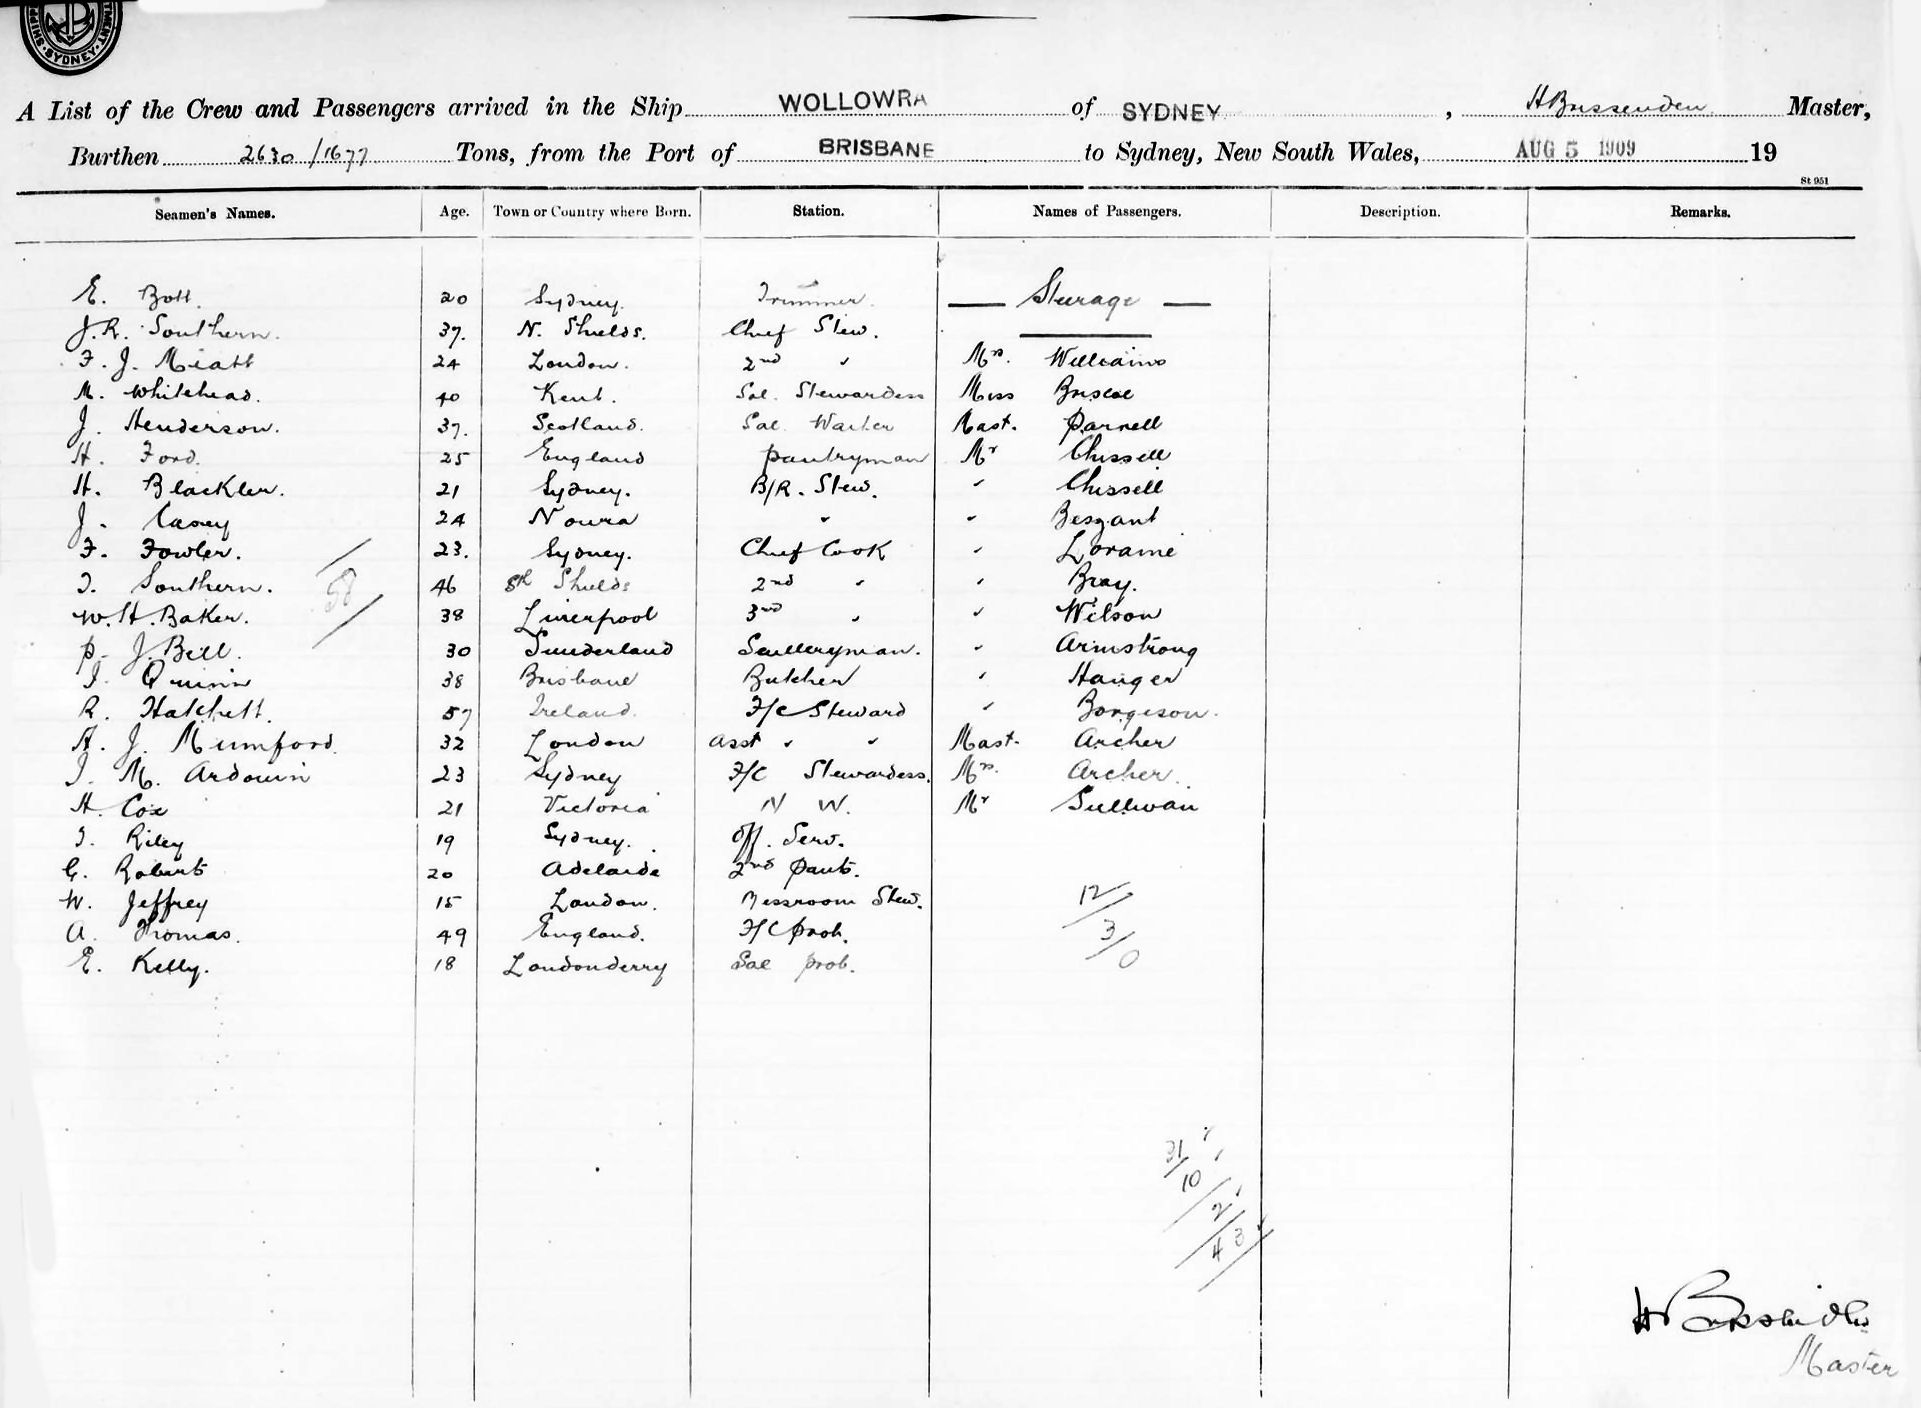 SHIPPING SYDNEY
A List of the Crew and Passengers arrived in the Ship WOLLOWRA of SYDNEY, H Bussenden Master,
Burthen 2630/1677 Tons, from the Port of BRISBANE to Sydney, New South Wales, AUG 5 1909 19
St 951
Seamen's Names. Age. Town or Country where Born. Station. Names of Passengers. Description. Remarks.
E. Bott. 20 Sydney. Trimmer. — Steerage —
J.R. Southern. 37. N. Shields. Chief Stew.
F. J. Miatt 24 London. 2nd " Mrs. Williams
M. Whitehead. 40 Kent. Sal. Stewardess Miss Briscoe
J. Henderson. 37. Scotland. Sal. Waiter Mast. Parnell
H. Ford. 25 England pantryman Mr Chissell
H. Blackler. 21 Sydney. B/R. Stew. " Chissell
J. Casey 24 Nowra " " Bezgant
F. Fowler. 23. Sydney. Chief Cook " Loraine
T. Southern. 46 Sth Shields 2nd " " Bray.
58
W.H. Baker. 38 Liverpool 3rd " " Wilson
P. J. Bell. 30 Sunderland Sculleryman. " Armstrong
J. Quinn 38 Brisbane Butcher " Hanger
R. Hatchett. 57 Ireland. F/C Steward " Borgeson.
A. J. Mumford. 32 London Asst " " Mast. Archer
I. M. Ardouin 23 Sydney F/C Stewardess. Mrs. Archer.
H Cox 21 Victoria N W. Mr Sullivan
T. Riley 19 Sydney. Off. Serv.
G. Roberts 20 Adelaide 2nd pant.
W. Jeffrey 15 London. Messroom Stew.
A. Thomas. 49 England. F/C prob.
E. Kelly. 18 Londonderry Sal prob.
12/3/0
31/10/2/43
H Bussenden
Master